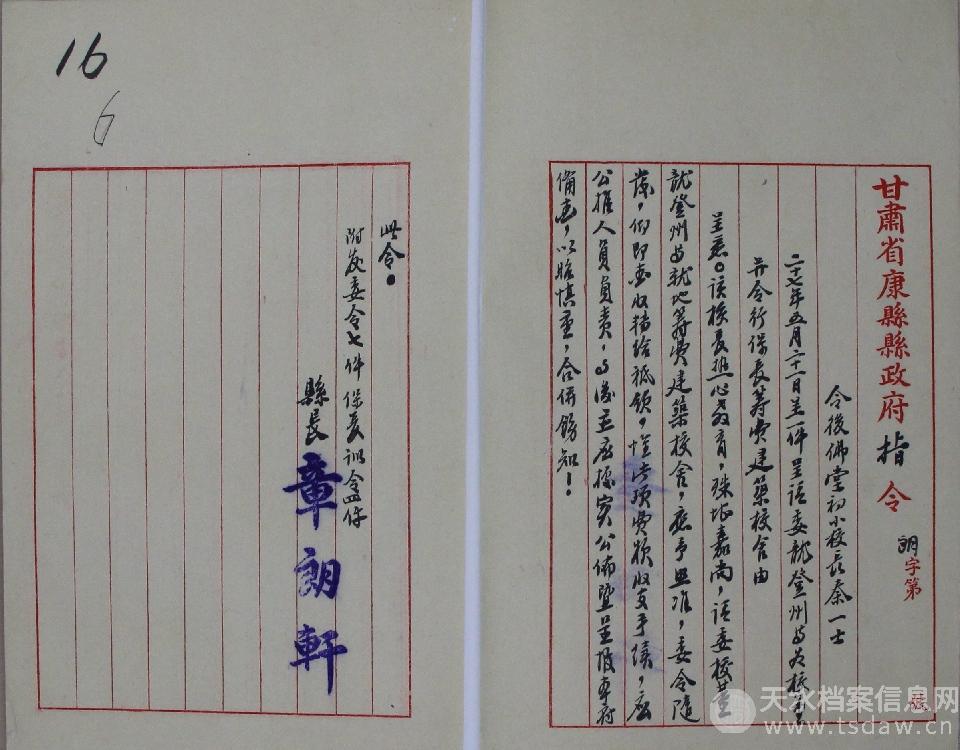 甘肅省康縣縣政府指令
朗字第 號
令後佛堂初小校長秦一士
二十七年五月二十一日呈一件呈請委龍登州等為校董
并令行保長籌費建築校舍由
呈悉。該校長熱心教育，殊堪嘉尚，請委校董
龍登州等就地籌費建築校舍，應予照准，委令隨
發，仰即查收轉給祗領，惟此項費額收支手續，應
公推人員負責，事後並應據實公佈暨呈报本府
備查，以昭慎重，合併飭知！
此令。
附發委令七件 保長訓令四件
縣長 章朗軒
16
6
天水档案信息网
www.tsdaw.cn